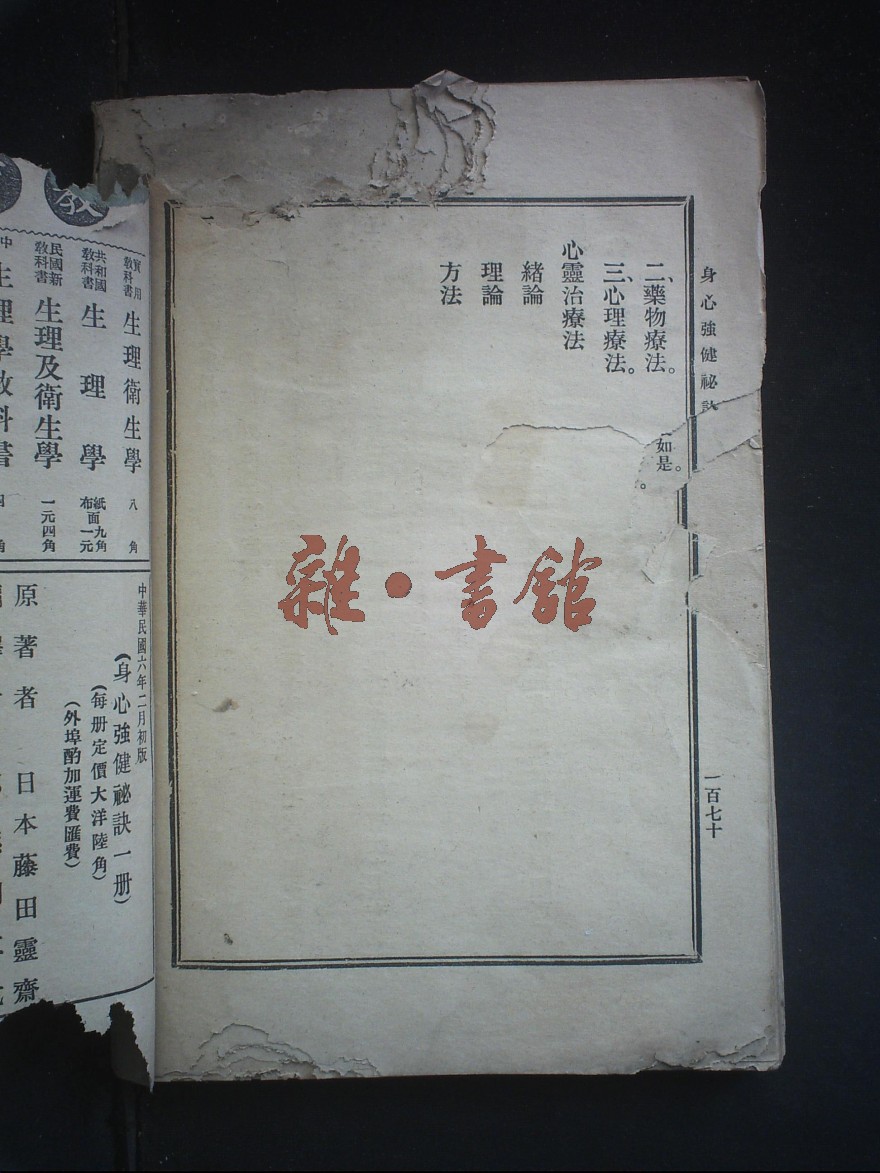 身心強健祕訣
二、藥物療法。
三、心理療法。
心靈治療法
緒論
理論
方法
如是。
一百七十
雜·書館
教
實用教科書 生理衛生學 八角
共和國教科書 生理學 紙面九角 布面一元
民國新教科書 生理及衛生學 一元四角
中 生理學教科書 四角
中華民國六年二月初版
(身心強健祕訣一册)
(每册定價大洋陸角)
(外埠酌加運費匯費)
原著者 日本藤田靈齋